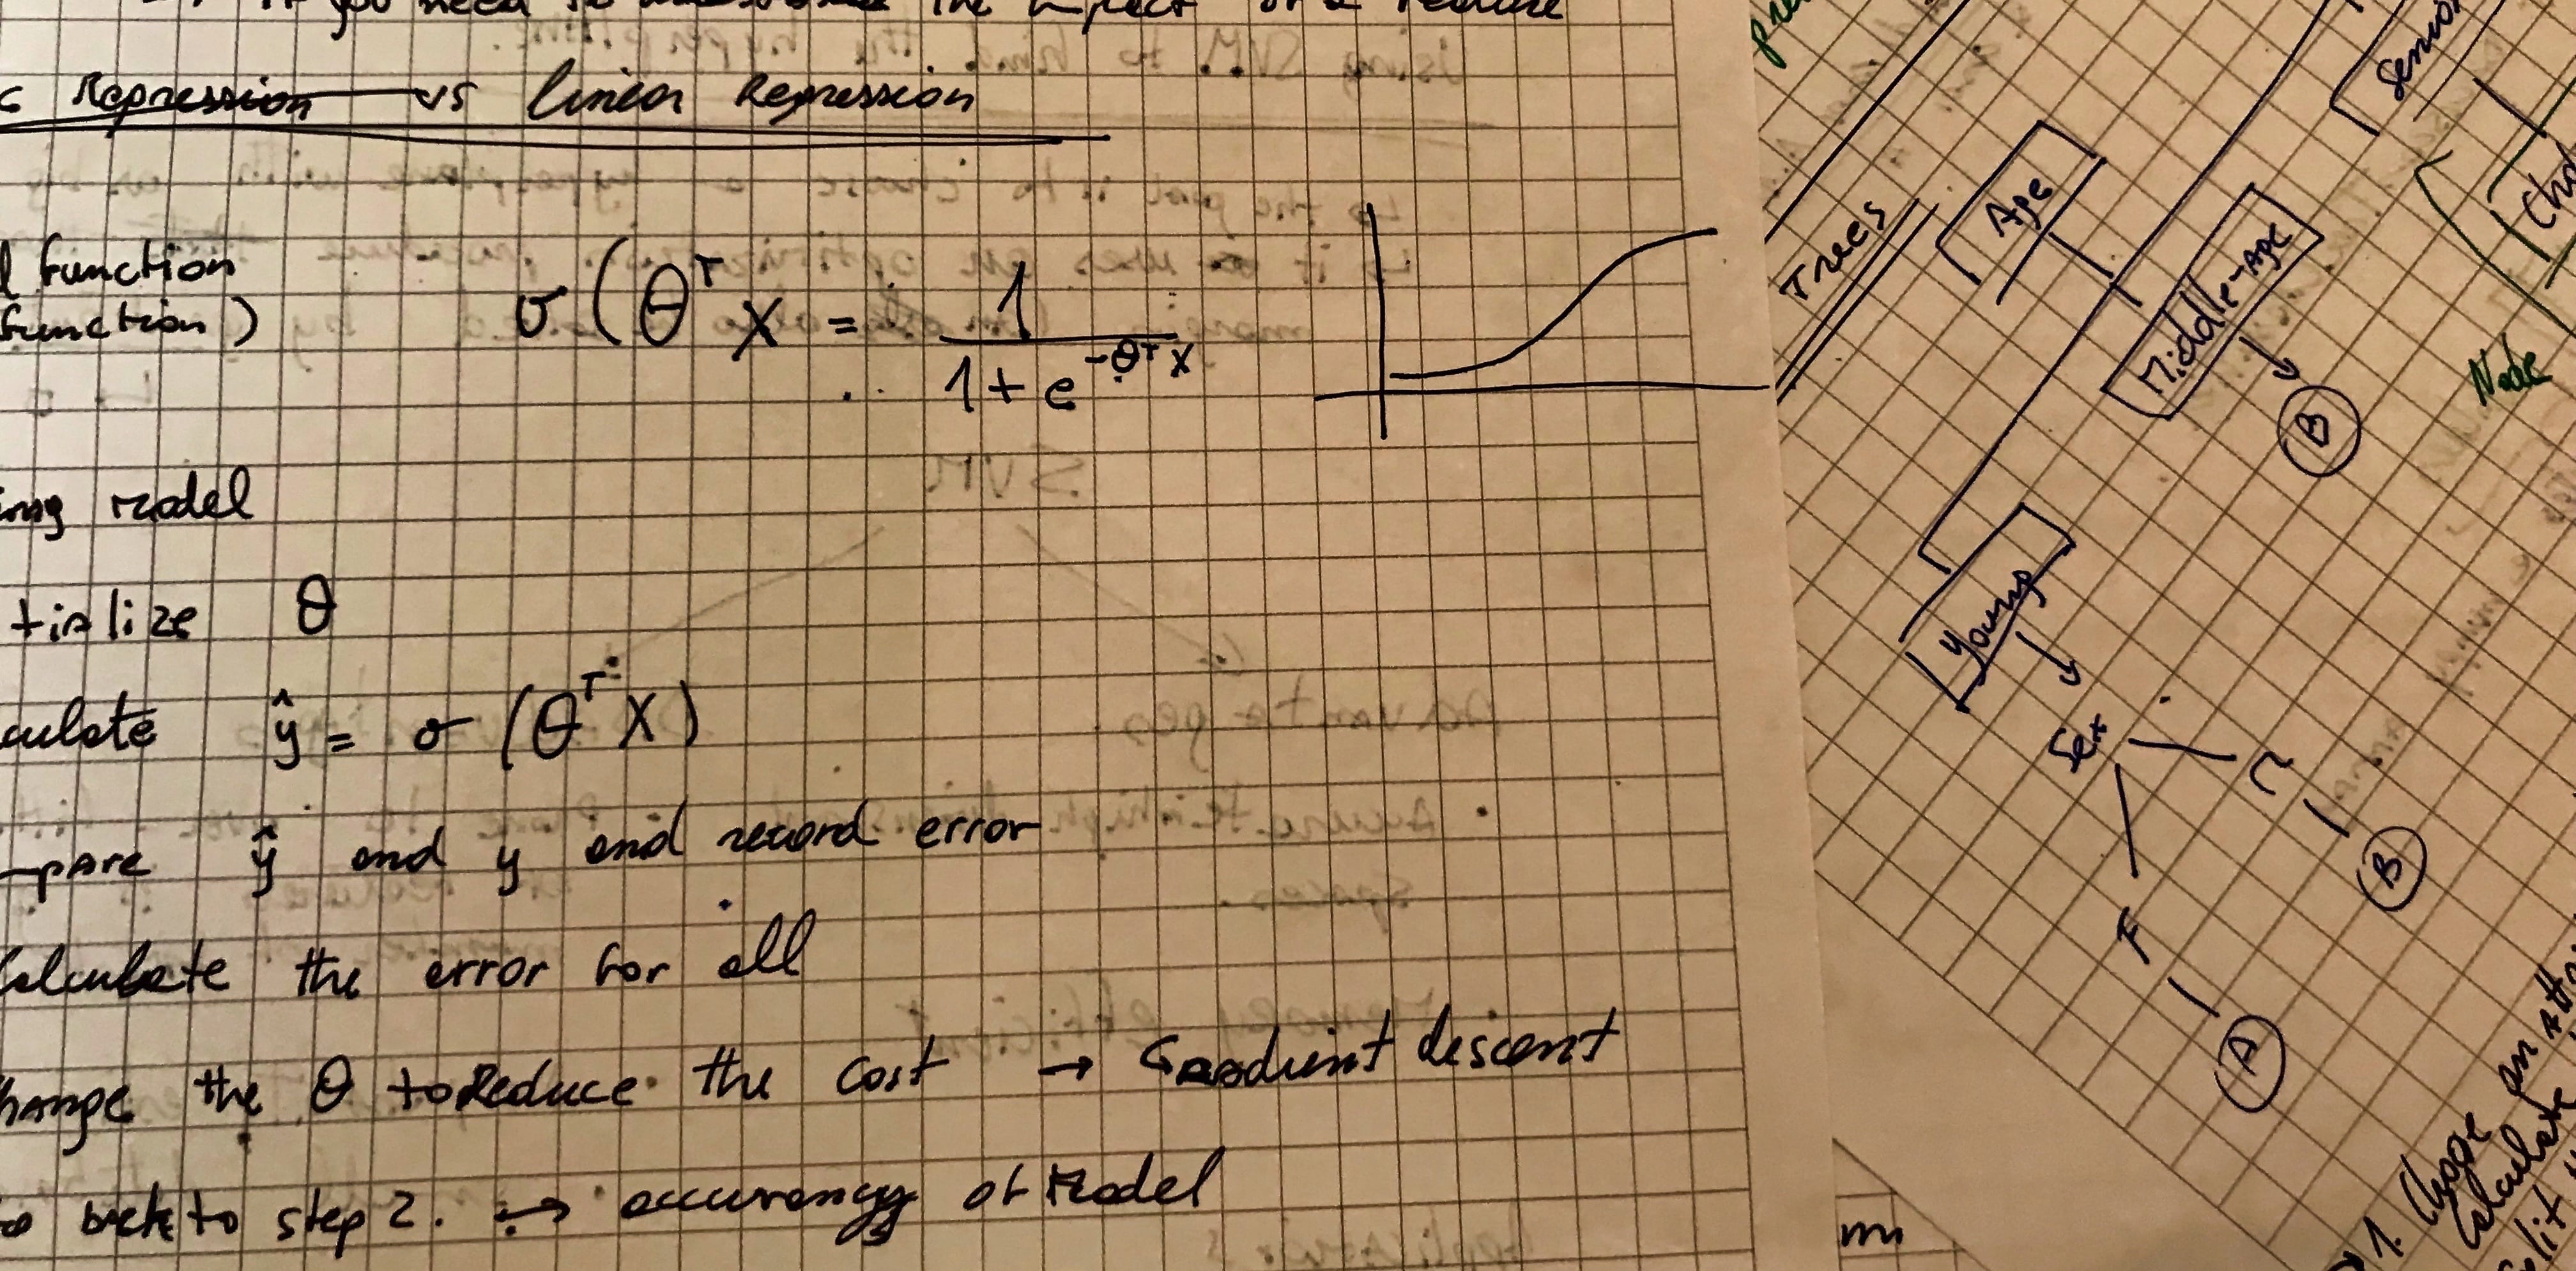 if you need to understand the impact of a feature
c Regression vs linear Regression
l function
function)
σ (θᵀ X = 1 / 1 + e^-θᵀX
ing model
tialize θ
culate ŷ = σ (θᵀ X)
mpare ŷ and y and record error
Calculate the error for all
hange the θ to Reduce the cost → Gradient descent
o back to step 2. → accurancy of Model
Trees
Age
Senior
Middle-Age
B
Chol
Node
Young
Sex
M
B
F
A
1. Choose an att
Calculate
Split